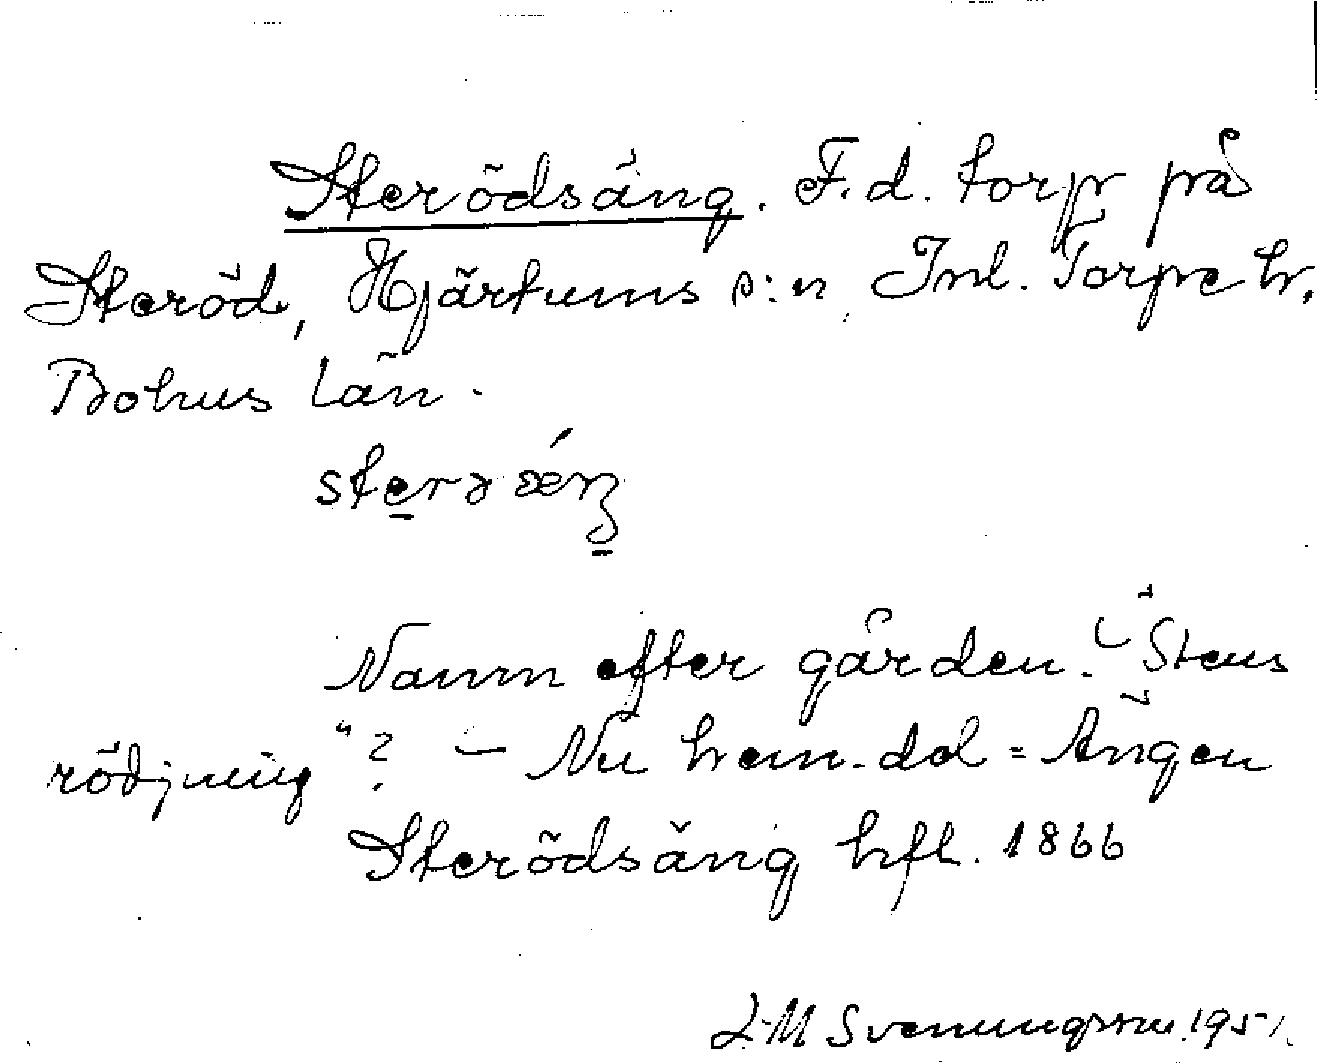 Sterödsäng. F.d. torp på
Steröd, Hjärtums s:n, Inl. Torpe hr.
Bohus län.
Namn efter gården. "Stens
rödjning"? – Nu hem.del = Ängen
Sterödsäng hfl. 1866
L-M Svenungsson. 1951.